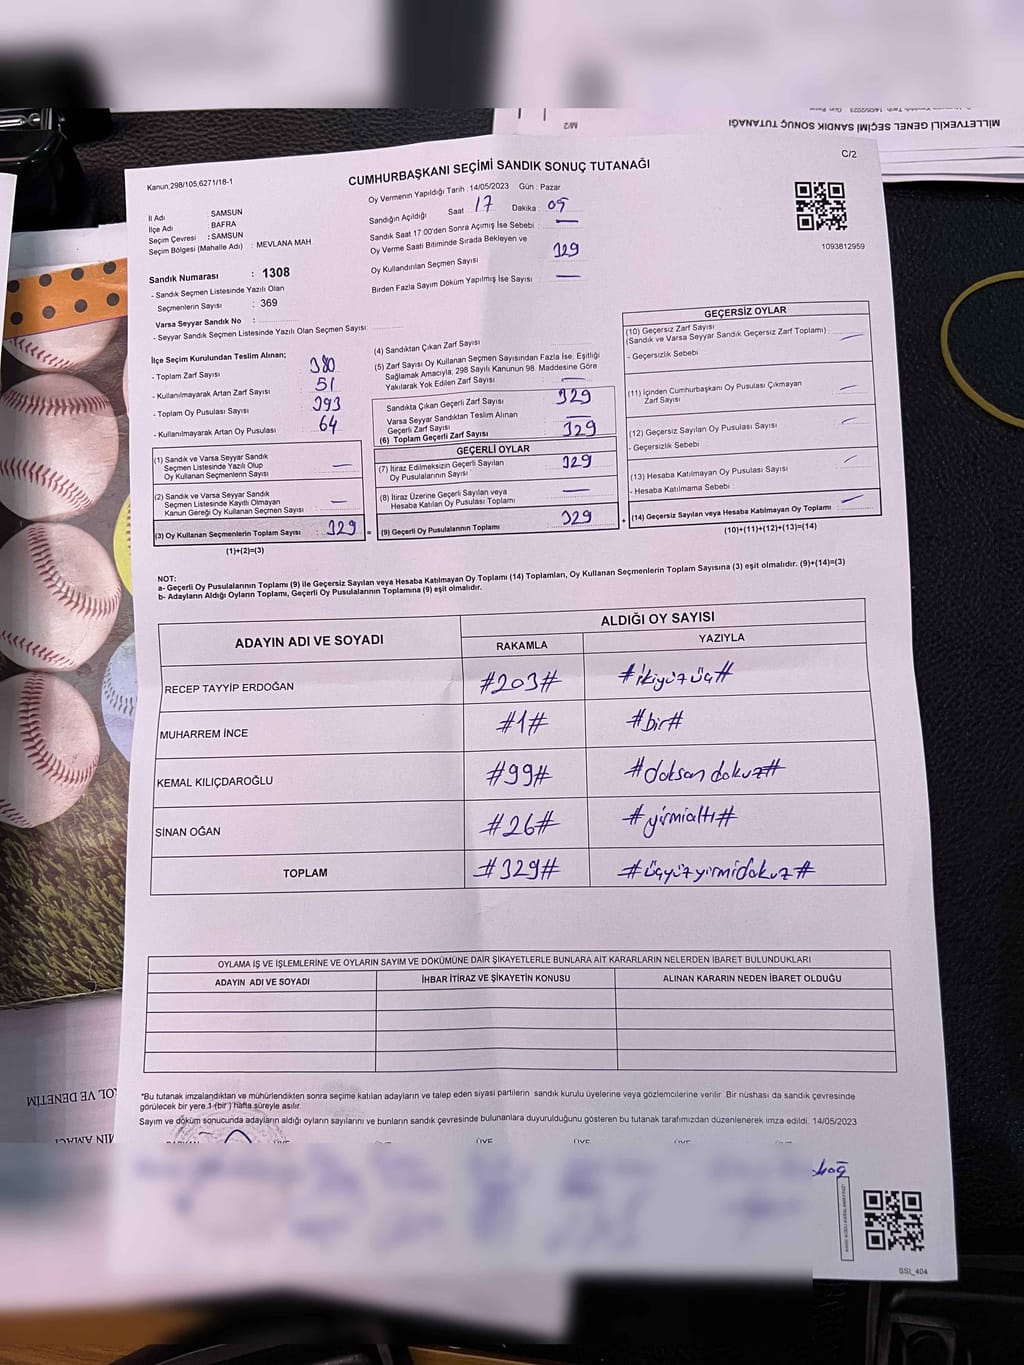 MİLLETVEKİLİ GENEL SEÇİMİ SANDIK SONUÇ TUTANAĞI
M/2
C/2
Kanun,298/105;6271/18-1
CUMHURBAŞKANI SEÇİMİ SANDIK SONUÇ TUTANAĞI
Oy Vermenin Yapıldığı Tarih : 14/05/2023 Gün : Pazar
İl Adı SAMSUN
İlçe Adı BAFRA
Seçim Çevresi : SAMSUN
Seçim Bölgesi (Mahalle Adı) : MEVLANA MAH
Sandığın Açıldığı Saat 17 Dakika : 05
Sandık Saat 17:00'den Sonra Açılmış İse Sebebi : —
Oy Verme Saati Bitiminde Sırada Bekleyen ve
Oy Kullandırılan Seçmen Sayısı 329
Birden Fazla Sayım Döküm Yapılmış İse Sayısı —
1093812959
Sandık Numarası : 1308
- Sandık Seçmen Listesinde Yazılı Olan
Seçmenlerin Sayısı : 369
Varsa Seyyar Sandık No :
- Seyyar Sandık Seçmen Listesinde Yazılı Olan Seçmen Sayısı:
İlçe Seçim Kurulundan Teslim Alınan;
- Toplam Zarf Sayısı 380
- Kullanılmayarak Artan Zarf Sayısı 51
- Toplam Oy Pusulası Sayısı 393
- Kullanılmayarak Artan Oy Pusulası 64
(1) Sandık ve Varsa Seyyar Sandık
Seçmen Listesinde Yazılı Olup
Oy Kullanan Seçmenlerin Sayısı —
(2) Sandık ve Varsa Seyyar Sandık
Seçmen Listesinde Kayıtlı Olmayan
Kanun Gereği Oy Kullanan Seçmen Sayısı : —
(3) Oy Kullanan Seçmenlerin Toplam Sayısı : 329 =
(1)+(2)=(3)
(4) Sandıktan Çıkan Zarf Sayısı
(5) Zarf Sayısı Oy Kullanan Seçmen Sayısından Fazla İse, Eşitliği
Sağlamak Amacıyla, 298 Sayılı Kanunun 98. Maddesine Göre
Yakılarak Yok Edilen Zarf Sayısı —
Sandıkta Çıkan Geçerli Zarf Sayısı 329
Varsa Seyyar Sandıktan Teslim Alınan
Geçerli Zarf Sayısı —
(6) Toplam Geçerli Zarf Sayısı 329
GEÇERLİ OYLAR
(7) İtiraz Edilmeksizin Geçerli Sayılan
Oy Pusulalarının Sayısı 329
(8) İtiraz Üzerine Geçerli Sayılan veya
Hesaba Katılan Oy Pusulası Toplamı —
(9) Geçerli Oy Pusulalarının Toplamı 329 +
GEÇERSİZ OYLAR
(10) Geçersiz Zarf Sayısı
(Sandık ve Varsa Seyyar Sandık Geçersiz Zarf Toplamı) : —
- Geçersizlik Sebebi
(11) İçinden Cumhurbaşkanı Oy Pusulası Çıkmayan
Zarf Sayısı —
(12) Geçersiz Sayılan Oy Pusulası Sayısı —
- Geçersizlik Sebebi
(13) Hesaba Katılmayan Oy Pusulası Sayısı —
- Hesaba Katılmama Sebebi :
(14) Geçersiz Sayılan veya Hesaba Katılmayan Oy Toplamı : —
(10)+(11)+(12)+(13)=(14)
NOT:
a- Geçerli Oy Pusulalarının Toplamı (9) ile Geçersiz Sayılan veya Hesaba Katılmayan Oy Toplamı (14) Toplamları, Oy Kullanan Seçmenlerin Toplam Sayısına (3) eşit olmalıdır. (9)+(14)=(3)
b- Adayların Aldığı Oyların Toplamı, Geçerli Oy Pusulalarının Toplamına (9) eşit olmalıdır.
ADAYIN ADI VE SOYADI ALDIĞI OY SAYISI
RAKAMLA YAZIYLA
RECEP TAYYİP ERDOĞAN #203# #ikiyüzüç#
MUHARREM İNCE #1# #bir#
KEMAL KILIÇDAROĞLU #99# #doksan dokuz#
SİNAN OĞAN #26# #yirmialtı#
TOPLAM #329# #üçyüzyirmidokuz#
OYLAMA İŞ VE İŞLEMLERİNE VE OYLARIN SAYIM VE DÖKÜMÜNE DAİR ŞİKAYETLERLE BUNLARA AİT KARARLARIN NELERDEN İBARET BULUNDUKLARI
ADAYIN ADI VE SOYADI İHBAR İTİRAZ VE ŞİKAYETİN KONUSU ALINAN KARARIN NEDEN İBARET OLDUĞU
*Bu tutanak imzalandıktan ve mühürlendikten sonra seçime katılan adayların ve talep eden siyasi partilerin sandık kurulu üyelerine veya gözlemcilerine verilir. Bir nüshası da sandık çevresinde
görülecek bir yere 1 (bir) hafta süreyle asılır.
Sayım ve döküm sonucunda adayların aldığı oyların sayılarını ve bunların sandık çevresinde bulunanlara duyurulduğunu gösteren bu tutanak tarafımızdan düzenlenerek imza edildi. 14/05/2023
ÜYE ÜYE ÜYE ÜYE ÜYE
OL VE DENETİM